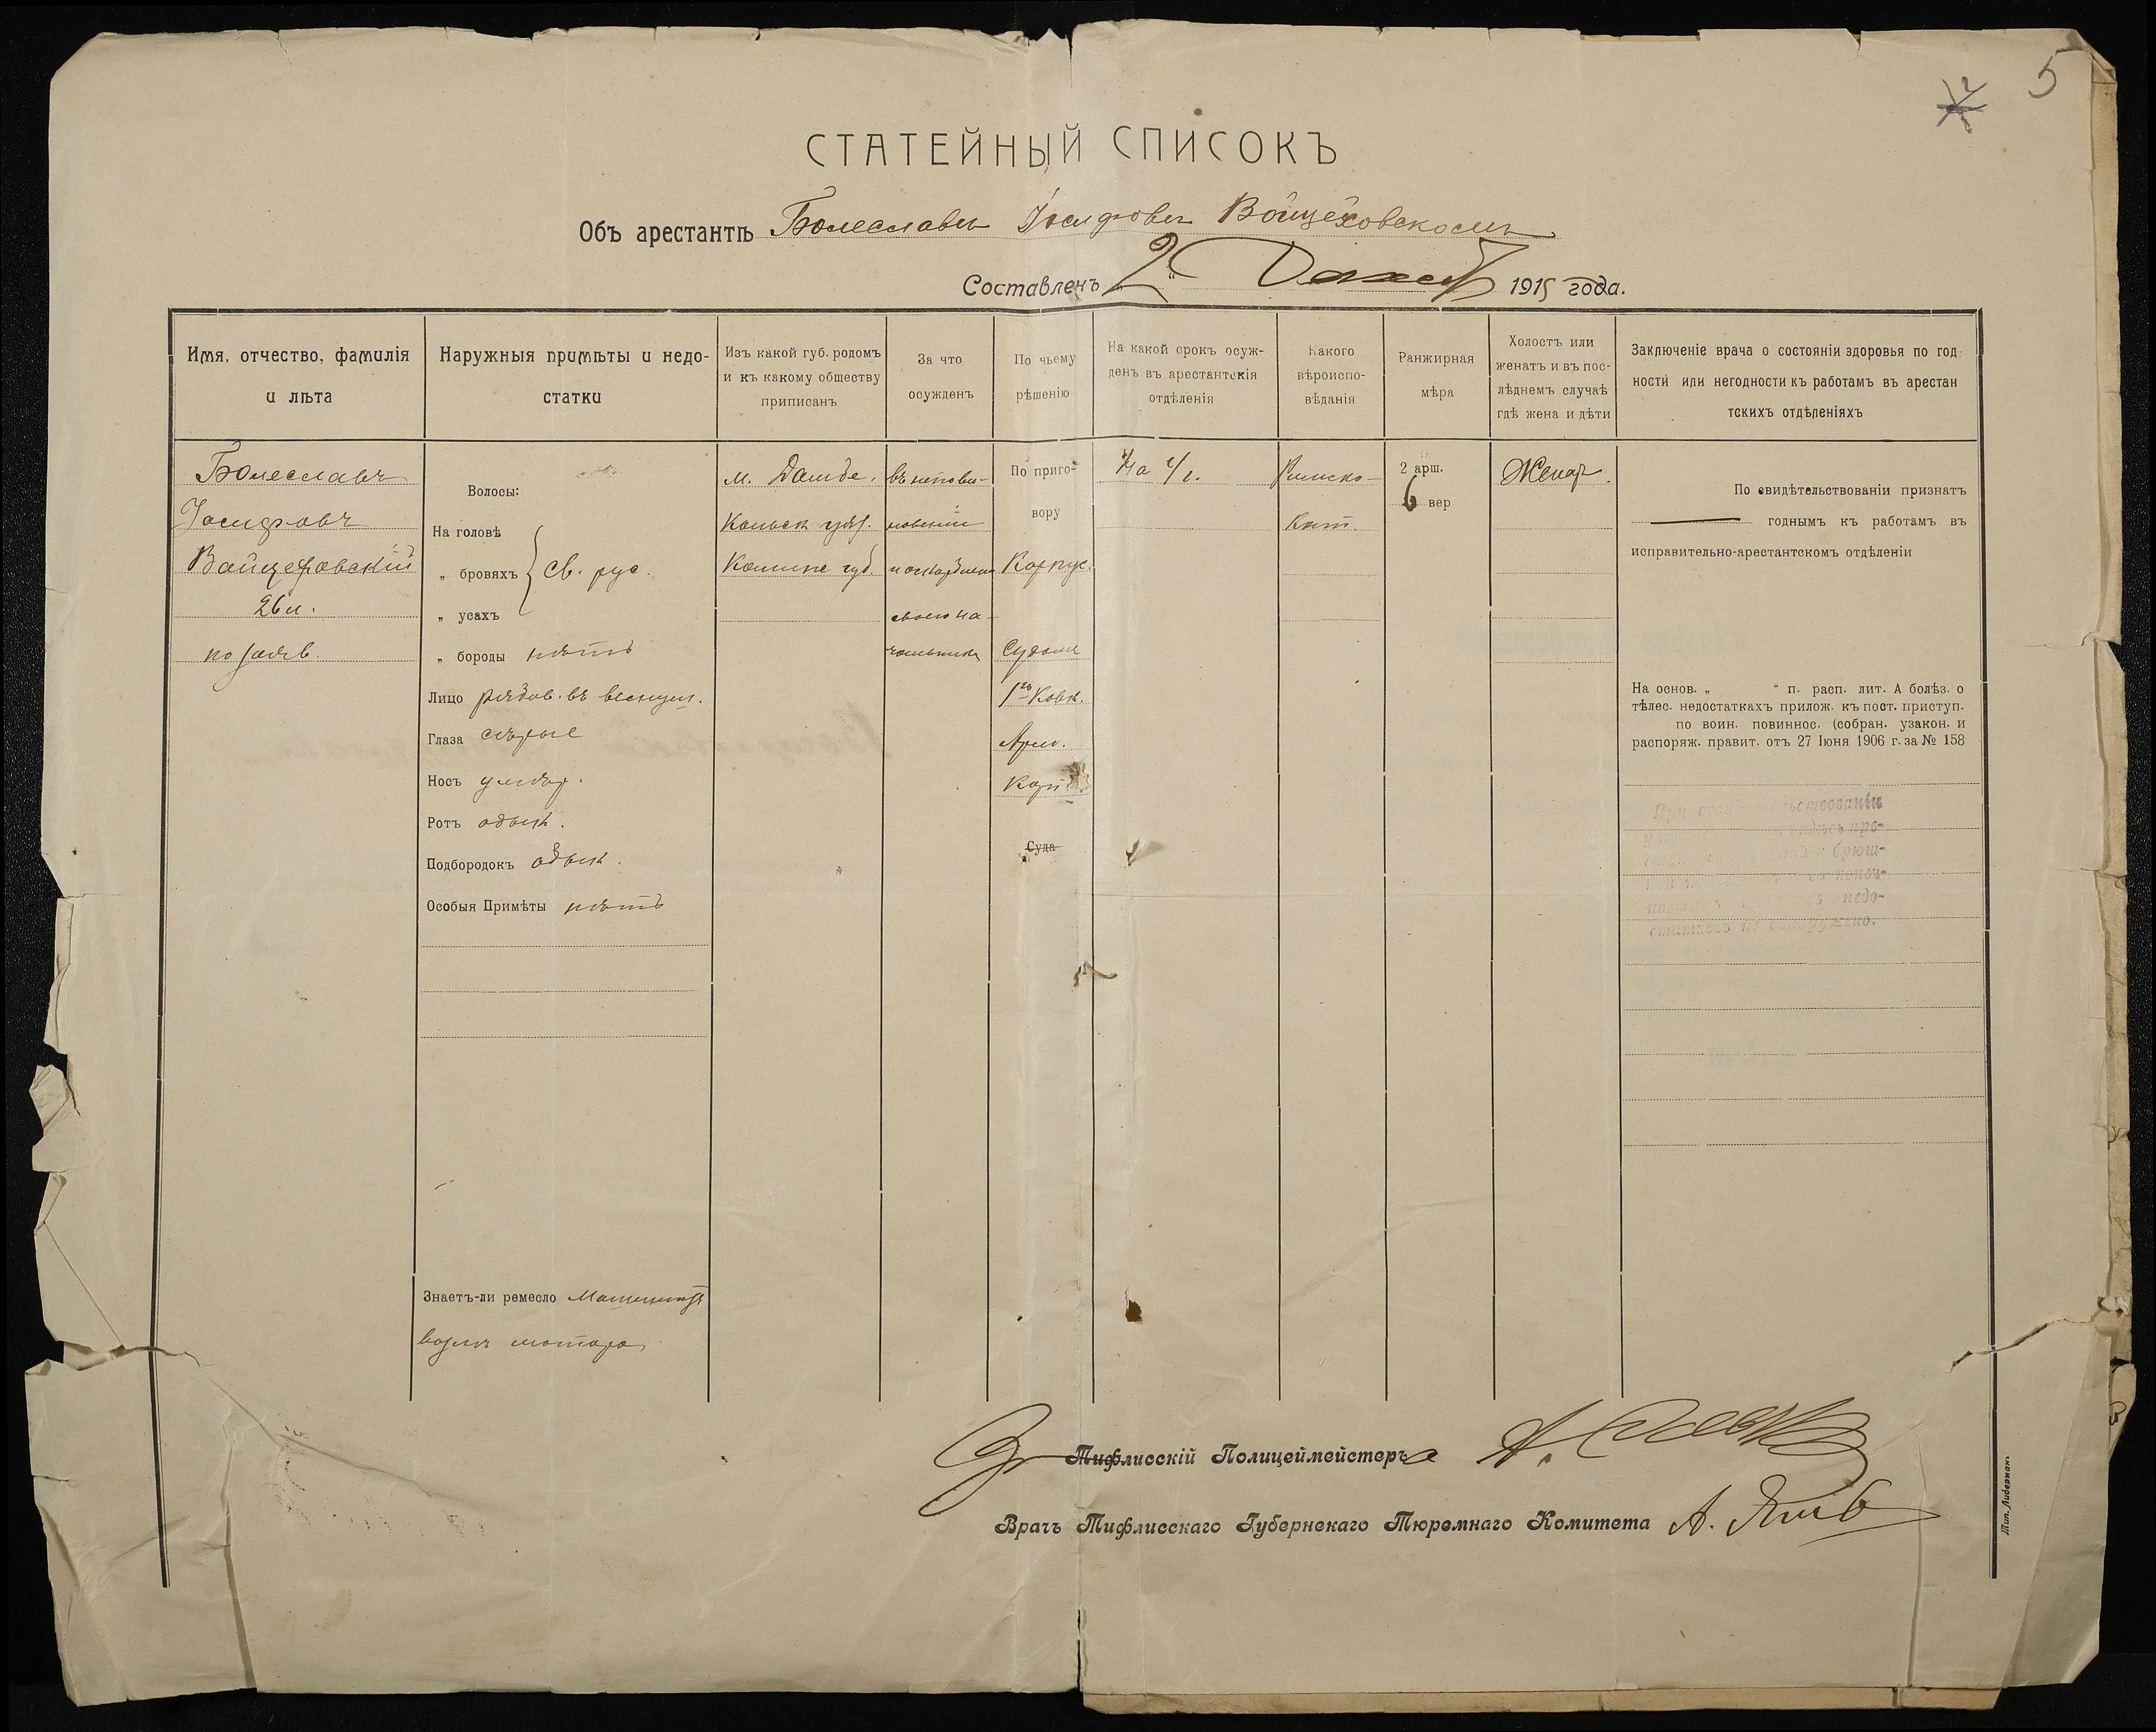 5
СТАТЕЙНЫЙ СПИСОКЪ
Объ арестантѣ Болеславѣ Іосифовѣ Войцеховскомъ
Составленъ 2 1915 года.
Имя, отчество, фамилія
и лѣта
Наружныя примѣты и недо-
статки
Изъ какой губ. родомъ
и къ какому обществу
приписанъ
За что
осужденъ
По чьему
рѣшенію
На какой срокъ осуж-
денъ въ арестантскія
отдѣленія
Какого
вѣроиспо-
вѣданія
Ранжирная
мѣра
Холостъ или
женатъ и въ пос-
лѣднемъ случаѣ
гдѣ жена и дѣти
Заключеніе врача о состояніи здоровья по год-
ности или негодности къ работамъ въ арестан
тскихъ отдѣленіяхъ
Болеславъ
Іосифовъ
Войцеховскій
26 л.
по заяв.
Волосы:
На головѣ
„ бровяхъ св. рус.
„ усахъ
„ бороды нѣтъ
Лицо рябов. въ веснуш.
Глаза сѣрые
Носъ умѣр.
Ротъ обыкн.
Подбородокъ обыкн.
Особыя Примѣты нѣтъ
Знаетъ-ли ремесло
мотора
м. Домбе,
Кольск уѣз.
Калишс губ.
въ непови-
новеніи
и оскорбленіи
своего на-
чальника
По приго-
вору
Корпус.
Судомъ
1го Кавк.
Арм.
Корп
Суда
На
Римско-
Кат.
2 арш.
6 вер
Женат.
По свидѣтельствованіи признатъ
годнымъ къ работамъ въ
исправительно-арестантскомъ отдѣленіи
На основ. „ “ п. расп. лит. А болѣз. о
тѣлес. недостаткахъ прилож. къ пост. приступ.
по воин. повиннос. (собран. узакон. и
распоряж. правит. отъ 27 Іюня 1906 г. за № 158
При
брюш-
недо-
статковъ не обнаружено.
Тифлисскій Полицеймейстеръ
Врачъ Тифлисскаго Губернскаго Тюремнаго Комитета А.
Тип. Либерманъ